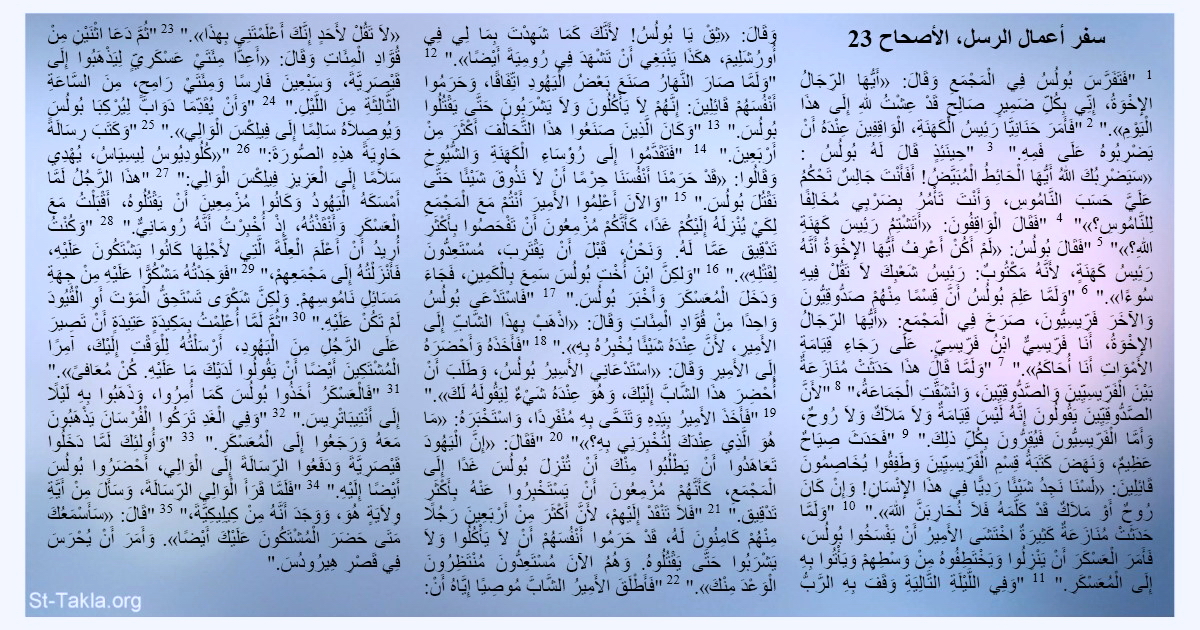 سفر أعمال الرسل، الأصحاح 23
1 "فَتَفَرَّسَ بُولُسُ فِي الْمَجْمَعِ وَقَالَ: «أَيُّهَا الرِّجَالُ
الإِخْوَةُ، إِنِّي بِكُلِّ ضَمِيرٍ صَالِحٍ قَدْ عِشْتُ للهِ إِلَى هذَا
الْيَوْمِ»." 2 "فَأَمَرَ حَنَانِيَّا رَئِيسُ الْكَهَنَةِ، الْوَاقِفِينَ عِنْدَهُ أَنْ
يَضْرِبُوهُ عَلَى فَمِهِ." 3 "حِينَئِذٍ قَالَ لَهُ بُولُسُ :
«سَيَضْرِبُكَ اللهُ أَيُّهَا الْحَائِطُ الْمُبَيَّضُ! أَفَأَنْتَ جَالِسٌ تَحْكُمُ
عَلَيَّ حَسَبَ النَّامُوسِ، وَأَنْتَ تَأْمُرُ بِضَرْبِي مُخَالِفًا
لِلنَّامُوسِ؟»" 4 "فَقَالَ الْوَاقِفُونَ: «أَتَشْتِمُ رَئِيسَ كَهَنَةِ
اللهِ؟»" 5 "فَقَالَ بُولُسُ: «لَمْ أَكُنْ أَعْرِفُ أَيُّهَا الإِخْوَةُ أَنَّهُ
رَئِيسُ كَهَنَةٍ، لأَنَّهُ مَكْتُوبٌ: رَئِيسُ شَعْبِكَ لاَ تَقُلْ فِيهِ
سُوءًا»." 6 "وَلَمَّا عَلِمَ بُولُسُ أَنَّ قِسْمًا مِنْهُمْ صَدُّوقِيُّونَ
وَالآخَرَ فَرِّيسِيُّونَ، صَرَخَ فِي الْمَجْمَعِ: «أَيُّهَا الرِّجَالُ
الإِخْوَةُ، أَنَا فَرِّيسِيٌّ ابْنُ فَرِّيسِيٍّ. عَلَى رَجَاءِ قِيَامَةِ
الأَمْوَاتِ أَنَا أُحَاكَمُ»." 7 "وَلَمَّا قَالَ هذَا حَدَثَتْ مُنَازَعَةٌ
بَيْنَ الْفَرِّيسِيِّينَ وَالصَّدُّوقِيِّينَ، وَانْشَقَّتِ الْجَمَاعَةُ،" 8 "لأَنَّ
الصَّدُّوقِيِّينَ يَقُولُونَ إِنَّهُ لَيْسَ قِيَامَةٌ وَلاَ مَلاَكٌ وَلاَ رُوحٌ،
وَأَمَّا الْفَرِّيسِيُّونَ فَيُقِرُّونَ بِكُلِّ ذلِكَ." 9 "فَحَدَثَ صِيَاحٌ
عَظِيمٌ، وَنَهَضَ كَتَبَةُ قِسْمِ الْفَرِّيسِيِّينَ وَطَفِقُوا يُخَاصِمُونَ
قَائِلِينَ: «لَسْنَا نَجِدُ شَيْئًا رَدِيًّا فِي هذَا الإِنْسَانِ! وَإِنْ كَانَ
رُوحٌ أَوْ مَلاَكٌ قَدْ كَلَّمَهُ فَلاَ نُحَارِبَنَّ اللهَ»." 10 "وَلَمَّا
حَدَثَتْ مُنَازَعَةٌ كَثِيرَةٌ اخْتَشَى الأَمِيرُ أَنْ يَفْسَخُوا بُولُسَ،
فَأَمَرَ الْعَسْكَرَ أَنْ يَنْزِلُوا وَيَخْتَطِفُوهُ مِنْ وَسْطِهِمْ وَيَأْتُوا بِهِ
إِلَى الْمُعَسْكَرِ." 11 "وَفِي اللَّيْلَةِ التَّالِيَةِ وَقَفَ بِهِ الرَّبُّ
وَقَالَ: «ثِقْ يَا بُولُسُ! لأَنَّكَ كَمَا شَهِدْتَ بِمَا لِي فِي
أُورُشَلِيمَ، هكَذَا يَنْبَغِي أَنْ تَشْهَدَ فِي رُومِيَةَ أَيْضًا»." 12
"وَلَمَّا صَارَ النَّهَارُ صَنَعَ بَعْضُ الْيَهُودِ اتِّفَاقًا، وَحَرَمُوا
أَنْفُسَهُمْ قَائِلِينَ: إِنَّهُمْ لاَ يَأْكُلُونَ وَلاَ يَشْرَبُونَ حَتَّى يَقْتُلُوا
بُولُسَ." 13 "وَكَانَ الَّذِينَ صَنَعُوا هذَا التَّحَالُفَ أَكْثَرَ مِنْ
أَرْبَعِينَ." 14 "فَتَقَدَّمُوا إِلَى رُؤَسَاءِ الْكَهَنَةِ وَالشُّيُوخِ
وَقَالُوا: «قَدْ حَرَمْنَا أَنْفُسَنَا حِرْمًا أَنْ لاَ نَذُوقَ شَيْئًا حَتَّى
نَقْتُلَ بُولُسَ." 15 "وَالآنَ أَعْلِمُوا الأَمِيرَ أَنْتُمْ مَعَ الْمَجْمَعِ
لِكَيْ يُنْزِلَهُ إِلَيْكُمْ غَدًا، كَأَنَّكُمْ مُزْمِعُونَ أَنْ تَفْحَصُوا بِأَكْثَرِ
تَدْقِيق عَمَّا لَهُ. وَنَحْنُ، قَبْلَ أَنْ يَقْتَرِبَ، مُسْتَعِدُّونَ
لِقَتْلِهِ»." 16 "وَلكِنَّ ابْنَ أُخْتِ بُولُسَ سَمِعَ بِالْكَمِينِ، فَجَاءَ
وَدَخَلَ الْمُعَسْكَرَ وَأَخْبَرَ بُولُسَ." 17 "فَاسْتَدْعَى بُولُسُ
وَاحِدًا مِنْ قُوَّادِ الْمِئَاتِ وَقَالَ: «اذْهَبْ بِهذَا الشَّابِّ إِلَى
الأَمِيرِ ، لأَنَّ عِنْدَهُ شَيْئًا يُخْبِرُهُ بِهِ»." 18 "فَأَخَذَهُ وَأَحْضَرَهُ
إِلَى الأَمِيرِ وَقَالَ: «اسْتَدْعَانِي الأَسِيرُ بُولُسُ، وَطَلَبَ أَنْ
أُحْضِرَ هذَا الشَّابَّ إِلَيْكَ، وَهُوَ عِنْدَهُ شَيْءٌ لِيَقُولَهُ لَكَ»."
19 "فَأَخَذَ الأَمِيرُ بِيَدِهِ وَتَنَحَّى بِهِ مُنْفَرِدًا، وَاسْتَخْبَرَهُ: «مَا
هُوَ الَّذِي عِنْدَكَ لِتُخْبِرَنِي بِهِ؟»" 20 "فَقَالَ: «إِنَّ الْيَهُودَ
تَعَاهَدُوا أَنْ يَطْلُبُوا مِنْكَ أَنْ تُنْزِلَ بُولُسَ غَدًا إِلَى
الْمَجْمَعِ، كَأَنَّهُمْ مُزْمِعُونَ أَنْ يَسْتَخْبِرُوا عَنْهُ بِأَكْثَرِ
تَدْقِيق." 21 "فَلاَ تَنْقَدْ إِلَيْهِمْ، لأَنَّ أَكْثَرَ مِنْ أَرْبَعِينَ رَجُلًا
مِنْهُمْ كَامِنُونَ لَهُ، قَدْ حَرَمُوا أَنْفُسَهُمْ أَنْ لاَ يَأْكُلُوا وَلاَ
يَشْرَبُوا حَتَّى يَقْتُلُوهُ. وَهُمُ الآنَ مُسْتَعِدُّونَ مُنْتَظِرُونَ
الْوَعْدَ مِنْكَ»." 22 "فَأَطْلَقَ الأَمِيرُ الشَّابَّ مُوصِيًا إِيَّاهُ أَنْ:
«لاَ تَقُلْ لأَحَدٍ إِنَّكَ أَعْلَمْتَنِي بِهذَا»." 23 "ثُمَّ دَعَا اثْنَيْنِ مِنْ
قُوَّادِ الْمِئَاتِ وَقَالَ: «أَعِدَّا مِئَتَيْ عَسْكَرِيٍّ لِيَذْهَبُوا إِلَى
قَيْصَرِيَّةَ، وَسَبْعِينَ فَارِسًا وَمِئَتَيْ رَامِحٍ، مِنَ السَّاعَةِ
الثَّالِثَةِ مِنَ اللَّيْلِ." 24 "وَأَنْ يُقَدِّمَا دَوَابَّ لِيُرْكِبَا بُولُسَ
وَيُوصِلاَهُ سَالِمًا إِلَى فِيلِكْسَ الْوَالِي»." 25 "وَكَتَبَ رِسَالَةً
حَاوِيَةً هذِهِ الصُّورَةَ:" 26 "«كُلُودِيُوسُ لِيسِيَاسُ، يُهْدِي
سَلاَمًا إِلَى الْعَزِيزِ فِيلِكْسَ الْوَالِي:" 27 "هذَا الرَّجُلُ لَمَّا
أَمْسَكَهُ الْيَهُودُ وَكَانُوا مُزْمِعِينَ أَنْ يَقْتُلُوهُ، أَقْبَلْتُ مَعَ
الْعَسْكَرِ وَأَنْقَذْتُهُ، إِذْ أُخْبِرْتُ أَنَّهُ رُومَانِيٌّ." 28 "وَكُنْتُ
أُرِيدُ أَنْ أَعْلَمَ الْعِلَّةَ الَّتِي لأَجْلِهَا كَانُوا يَشْتَكُونَ عَلَيْهِ،
فَأَنْزَلْتُهُ إِلَى مَجْمَعِهِمْ،" 29 "فَوَجَدْتُهُ مَشْكُوًّا عَلَيْهِ مِنْ جِهَةِ
مَسَائِلِ نَامُوسِهِمْ. وَلكِنَّ شَكْوَى تَسْتَحِقُّ الْمَوْتَ أَوِ الْقُيُودَ
لَمْ تَكُنْ عَلَيْهِ." 30 "ثُمَّ لَمَّا أُعْلِمْتُ بِمَكِيدَةٍ عَتِيدَةٍ أَنْ تَصِيرَ
عَلَى الرَّجُلِ مِنَ الْيَهُودِ، أَرْسَلْتُهُ لِلْوَقْتِ إِلَيْكَ، آمِرًا
الْمُشْتَكِينَ أَيْضًا أَنْ يَقُولُوا لَدَيْكَ مَا عَلَيْهِ. كُنْ مُعَافىً»."
31 "فَالْعَسْكَرُ أَخَذُوا بُولُسَ كَمَا أُمِرُوا، وَذَهَبُوا بِهِ لَيْلًا
إِلَى أَنْتِيبَاتْرِيسَ." 32 "وَفِي الْغَدِ تَرَكُوا الْفُرْسَانَ يَذْهَبُونَ
مَعَهُ وَرَجَعُوا إِلَى الْمُعَسْكَرِ." 33 "وَأُولئِكَ لَمَّا دَخَلُوا
قَيْصَرِيَّةَ وَدَفَعُوا الرِّسَالَةَ إِلَى الْوَالِي، أَحْضَرُوا بُولُسَ
أَيْضًا إِلَيْهِ." 34 "فَلَمَّا قَرَأَ الْوَالِي الرِّسَالَةَ، وَسَأَلَ مِنْ أَيَّةِ
وِلاَيَةٍ هُوَ، وَوَجَدَ أَنَّهُ مِنْ كِيلِيكِيَّةَ،" 35 "قَالَ: «سَأَسْمَعُكَ
مَتَى حَضَرَ الْمُشْتَكُونَ عَلَيْكَ أَيْضًا». وَأَمَرَ أَنْ يُحْرَسَ
فِي قَصْرِ هِيرُودُسَ."
St-Takla.org